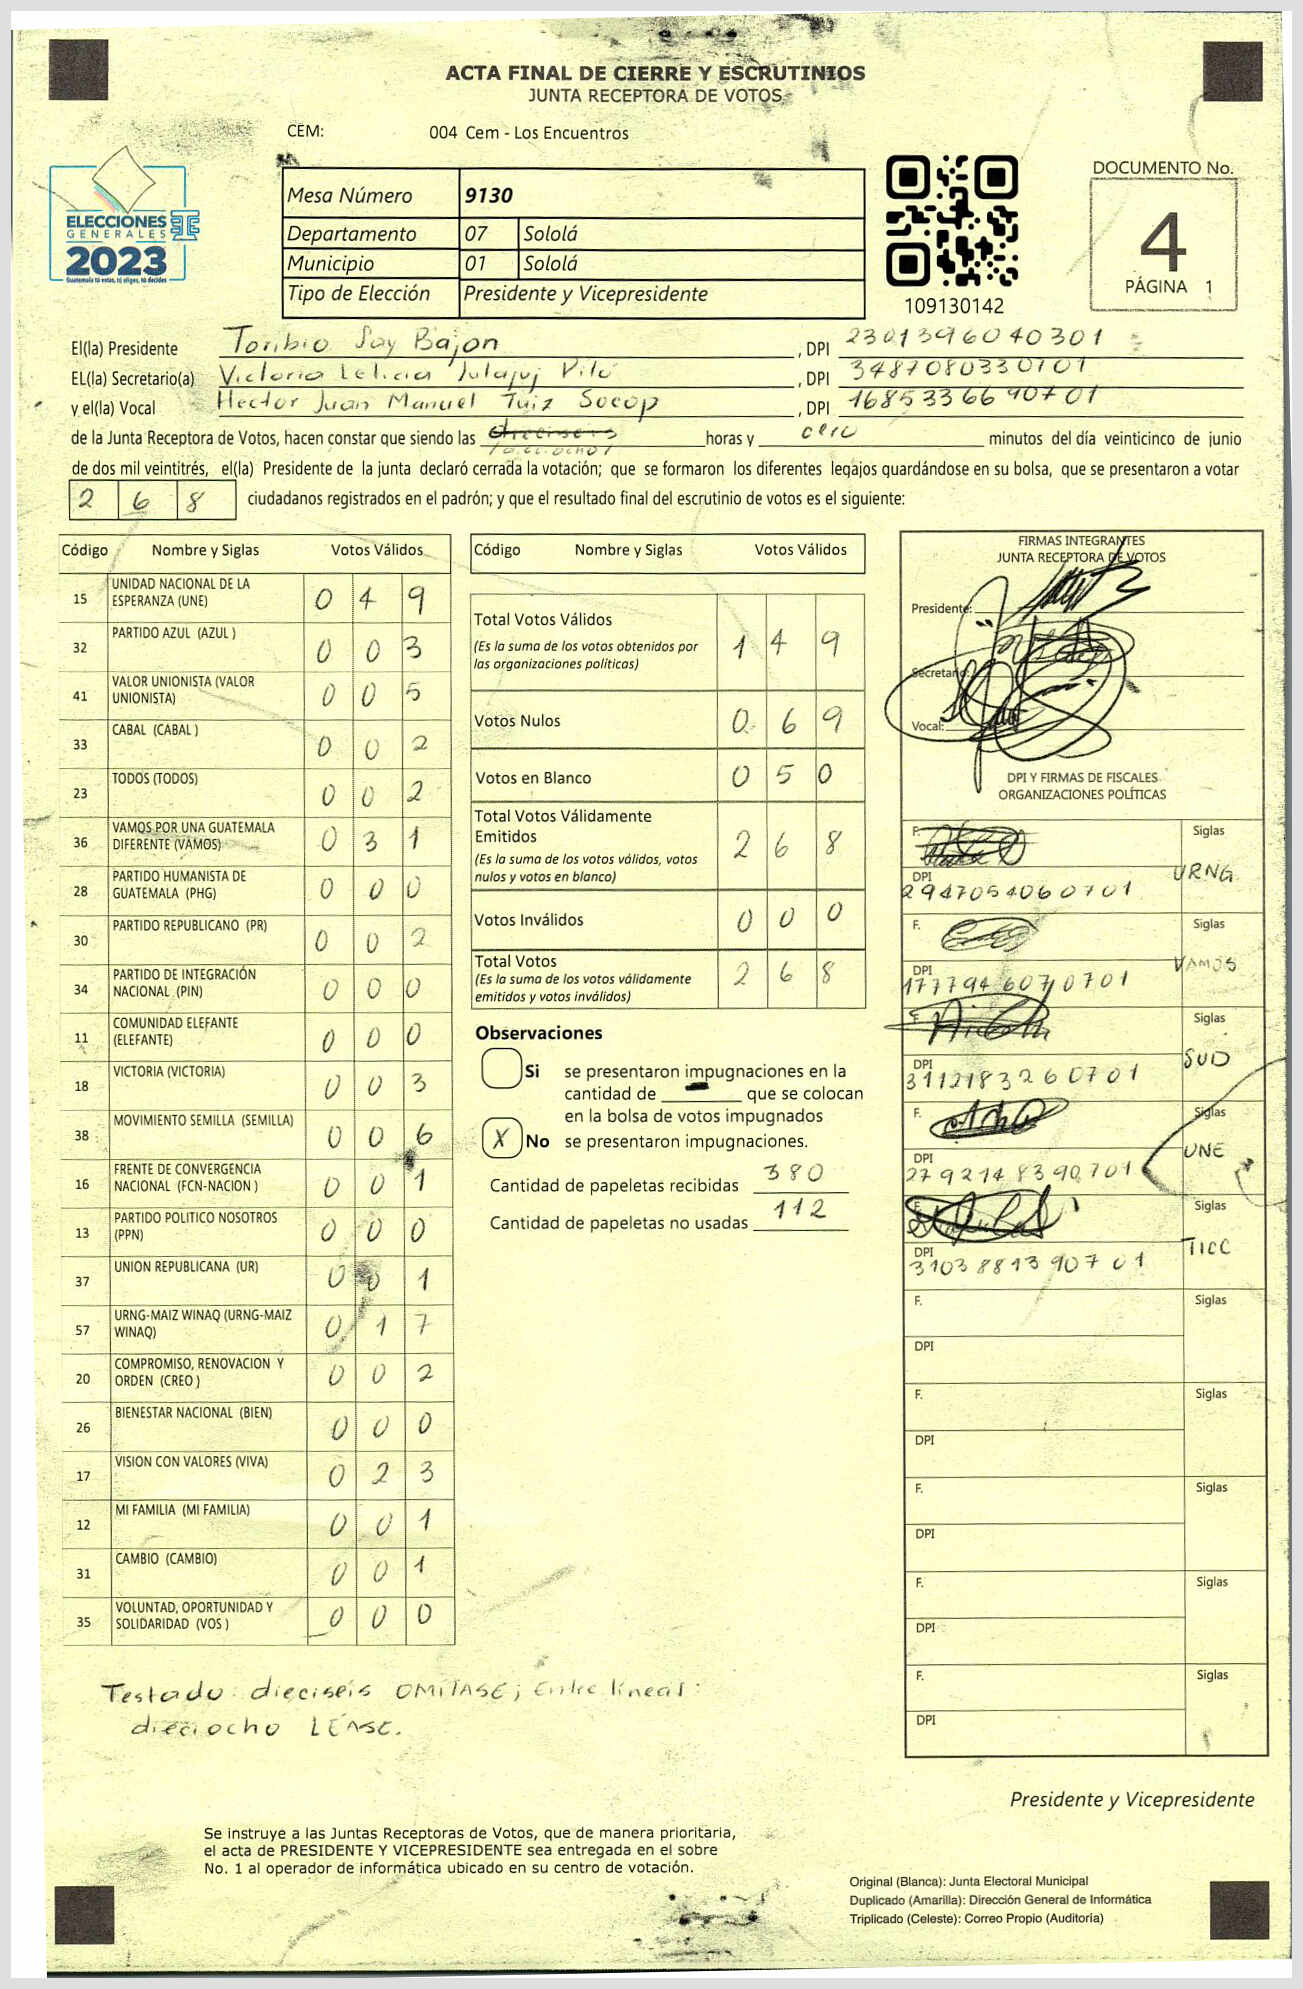 ACTA FINAL DE CIERRE Y ESCRUTINIOS
JUNTA RECEPTORA DE VOTOS
CEM: 004 Cem - Los Encuentros
ELECCIONES
GENERALES
2023
Guatemala tú votas, tú eliges, tú decides
Mesa Número 9130
Departamento 07 Sololá
Municipio 01 Sololá
Tipo de Elección Presidente y Vicepresidente
109130142
DOCUMENTO No.
4
PÁGINA 1
El(la) Presidente Toribio Say Bajon, DPI 2301396040301
EL(la) Secretario(a) Victoria Leticia Julajuj Piló, DPI 3487080330701
y el(la) Vocal Hector Juan Manuel Tuiz Socop, DPI 1685336690701
de la Junta Receptora de Votos, hacen constar que siendo las dieciseis horas y cero minutos del día veinticinco de junio
dieciocho
de dos mil veintitrés, el(la) Presidente de la junta declaró cerrada la votación; que se formaron los diferentes legajos guardándose en su bolsa, que se presentaron a votar
2 6 8 ciudadanos registrados en el padrón; y que el resultado final del escrutinio de votos es el siguiente:
Código Nombre y Siglas Votos Válidos
15 UNIDAD NACIONAL DE LA
ESPERANZA (UNE) 0 4 9
32 PARTIDO AZUL (AZUL ) 0 0 3
41 VALOR UNIONISTA (VALOR
UNIONISTA) 0 0 5
33 CABAL (CABAL ) 0 0 2
23 TODOS (TODOS) 0 0 2
36 VAMOS POR UNA GUATEMALA
DIFERENTE (VAMOS) 0 3 1
28 PARTIDO HUMANISTA DE
GUATEMALA (PHG) 0 0 0
30 PARTIDO REPUBLICANO (PR) 0 0 2
34 PARTIDO DE INTEGRACIÓN
NACIONAL (PIN) 0 0 0
11 COMUNIDAD ELEFANTE
(ELEFANTE) 0 0 0
18 VICTORIA (VICTORIA) 0 0 3
38 MOVIMIENTO SEMILLA (SEMILLA) 0 0 6
16 FRENTE DE CONVERGENCIA
NACIONAL (FCN-NACION ) 0 0 1
13 PARTIDO POLITICO NOSOTROS
(PPN) 0 0 0
37 UNION REPUBLICANA (UR) 0 0 1
57 URNG-MAIZ WINAQ (URNG-MAIZ
WINAQ) 0 1 7
20 COMPROMISO, RENOVACION Y
ORDEN (CREO ) 0 0 2
26 BIENESTAR NACIONAL (BIEN) 0 0 0
17 VISION CON VALORES (VIVA) 0 2 3
12 MI FAMILIA (MI FAMILIA) 0 0 1
31 CAMBIO (CAMBIO) 0 0 1
35 VOLUNTAD, OPORTUNIDAD Y
SOLIDARIDAD (VOS ) 0 0 0
Código Nombre y Siglas Votos Válidos
Total Votos Válidos 1 4 9
(Es la suma de los votos obtenidos por
las organizaciones políticas)
Votos Nulos 0 6 9
Votos en Blanco 0 5 0
Total Votos Válidamente
Emitidos 2 6 8
(Es la suma de los votos válidos, votos
nulos y votos en blanco)
Votos Inválidos 0 0 0
Total Votos 2 6 8
(Es la suma de los votos válidamente
emitidos y votos inválidos)
Observaciones
Si se presentaron impugnaciones en la
cantidad de que se colocan
en la bolsa de votos impugnados
X No se presentaron impugnaciones.
Cantidad de papeletas recibidas 380
Cantidad de papeletas no usadas 112
FIRMAS INTEGRANTES
JUNTA RECEPTORA DE VOTOS
Presidente:
Secretario:
Vocal:
DPI Y FIRMAS DE FISCALES
ORGANIZACIONES POLÍTICAS
F. Siglas
DPI URNG
2947054060701
F. Siglas
DPI VAMOS
1777946070701
F. Siglas
DPI SUD
3112183260701
F. Siglas
DPI UNE
2792148390701
F. Siglas
DPI TICC
3103881390701
F. Siglas
DPI
F. Siglas
DPI
F. Siglas
DPI
F. Siglas
DPI
F. Siglas
DPI
Testado: dieciseis OMITASE; Entre lineas:
dieciocho LEASE.
Presidente y Vicepresidente
Se instruye a las Juntas Receptoras de Votos, que de manera prioritaria,
el acta de PRESIDENTE Y VICEPRESIDENTE sea entregada en el sobre
No. 1 al operador de informática ubicado en su centro de votación.
Original (Blanca): Junta Electoral Municipal
Duplicado (Amarilla): Dirección General de Informática
Triplicado (Celeste): Correo Propio (Auditoría)